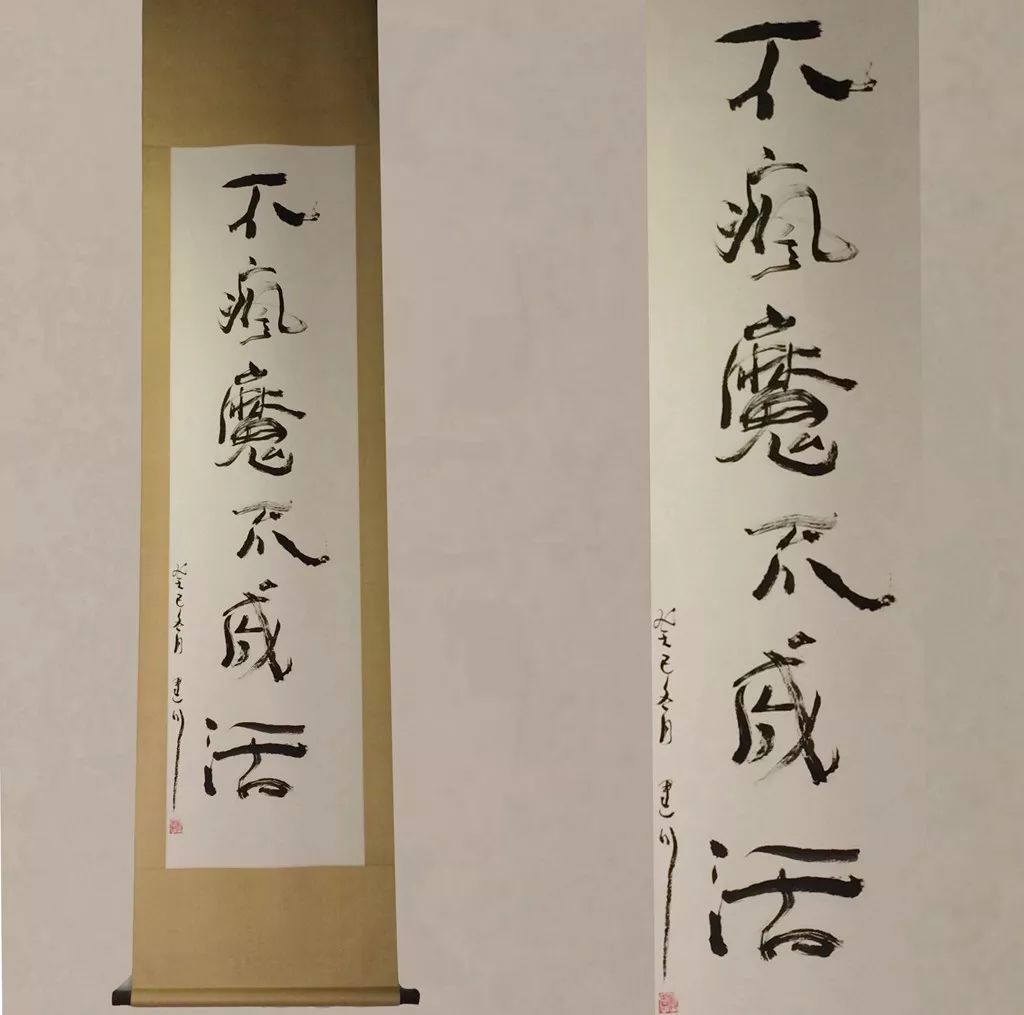 不瘋魔不成活
癸巳冬月 建川
不瘋魔不成活
癸巳冬月 建川